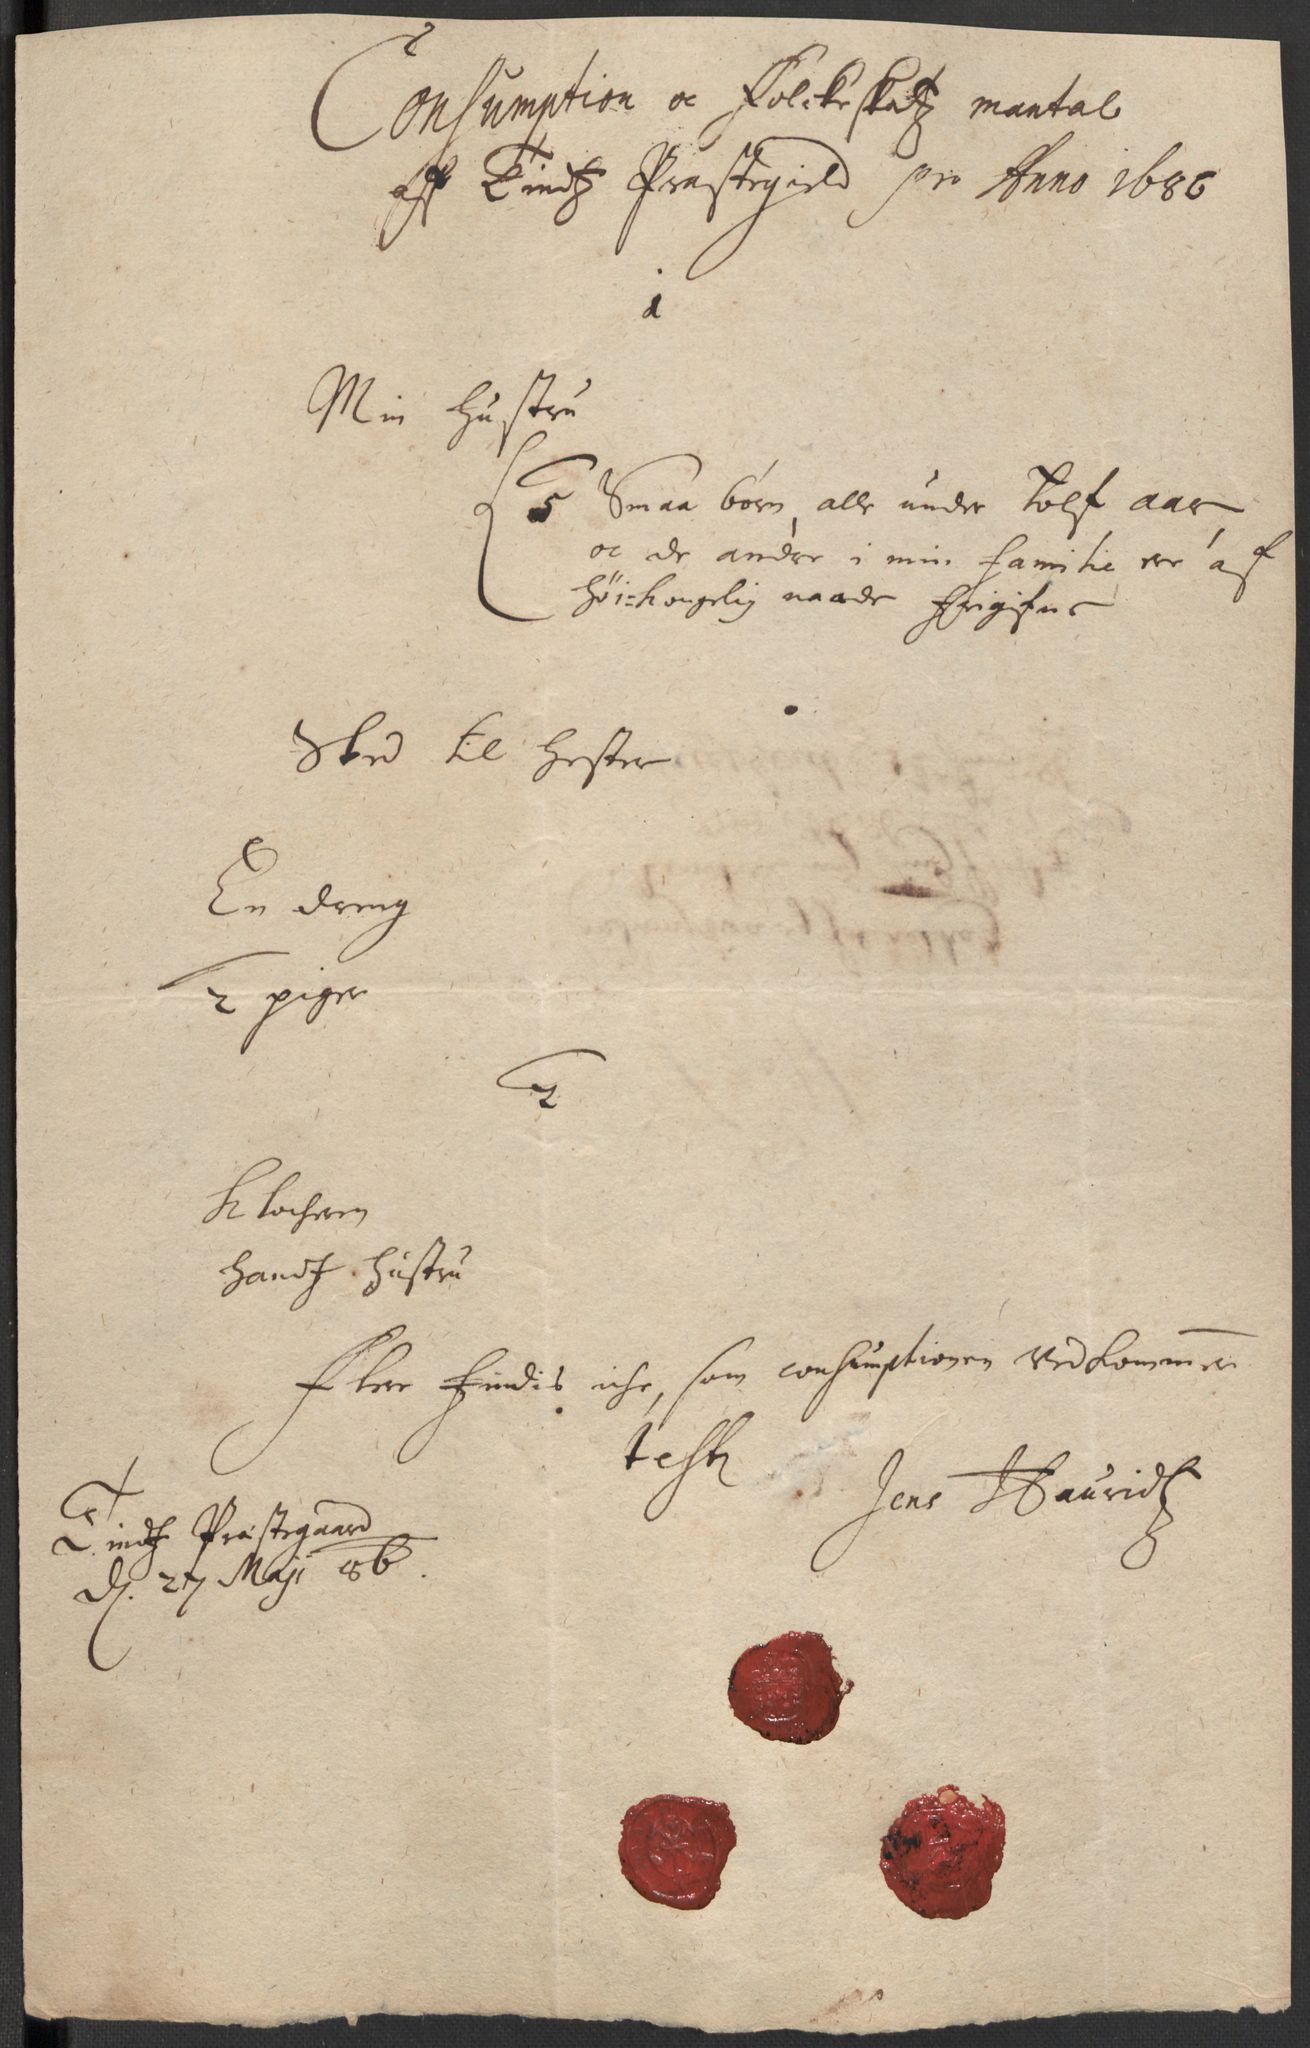 Consumption oc Folckeskatz mantal
aff Tindtz Præstegield pro Anno 1686
1
Min Hustru
5 Smaa børn, alle under Tolf aar
oc de andre i min familie ere af
høi-kongelig naade frigifne
Sked til Hester
En dreng
2 piger
2
Klocheren
Handtz Hustru
Flere findis iche, som consumptionen vedkommer
test
Jens Lauridtz
Tindtz Præstegaard
d. 27 Maji 86.